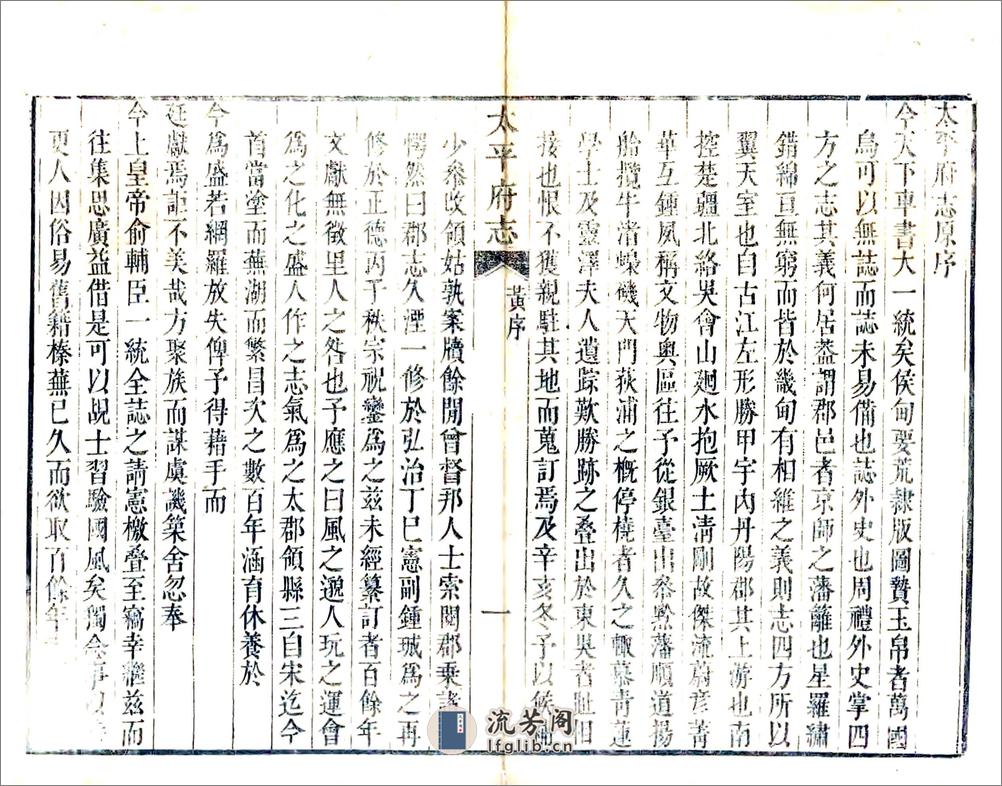 太平府志原序
今天下車書大一統矣侯甸要荒隷版圖贄玉帛者萬國
烏可以無誌而誌未易備也誌外史也周禮外史掌四
方之志其義何居葢謂郡邑者京師之藩離也星羅繡
錯綿亘無窮而皆於畿甸有相維之義則志四方所以
翼天室也自古江左形勝甲宇內丹陽郡其上游也南
控楚疆北絡吳會山廻水抱厥土淸剛故傑流蔚彦菁
華互鍾夙稱文物奧區往予從銀臺出叅黔藩順道揚
舲攬牛渚蠑磯天門荻浦之槪停橈者久之輙慕靑蓮
學士及靈澤夫人遺踪歎勝跡之叠出於東吳者趾相
接也恨不獲親駐其地而蒐訂焉及辛亥冬予以候
太平府志
黃序
一
少叅改領姑孰案牘餘閒曾督邦人士索閱郡乘
愕然曰郡志久湮一修於弘治丁巳憲副鍾珹爲之再
修於正德丙子秩宗祝鑾爲之兹未經纂訂者百餘年
文獻無徵里人之咎也予應之曰風之遞人玩之運會
爲之化之盛人作之志氣爲之太郡領縣三自宋迄今
首當塗而蕪湖而繁昌次之數百年涵育休養於
今爲盛若網羅放失俾予得藉手而
廷獻焉詎不美哉方聚族而謀虞譏築舍忽奉
今上皇帝俞輔臣一統全誌之請憲檄叠至竊幸繼兹而
往集思廣益借是可以覘士習驗國風矣獨念事以
更人因俗易舊籍榛蕪已久而欲取百餘年
流芳阁
lfglib.cn